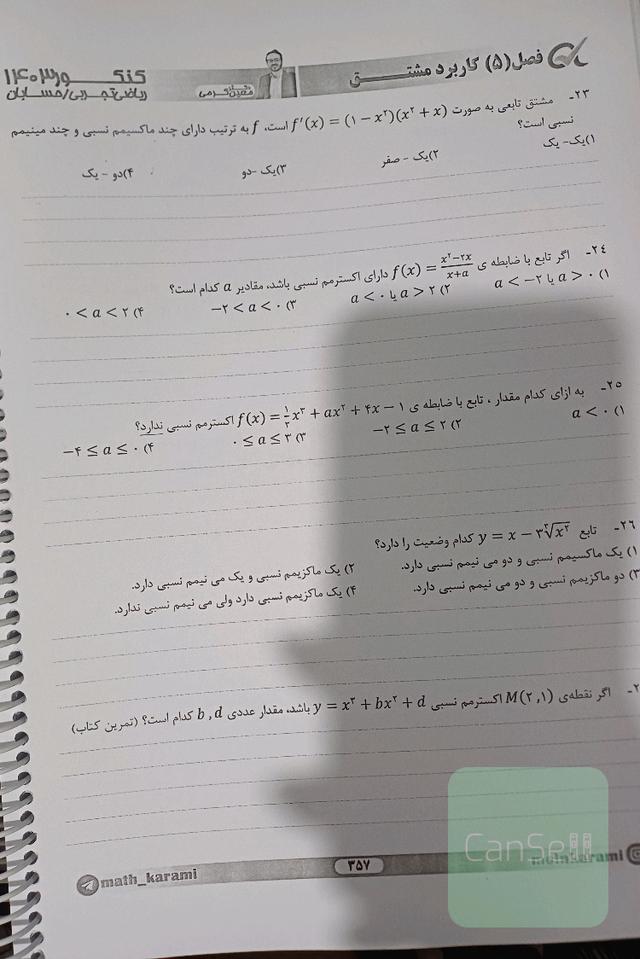 فصل(۵) کاربرد مشتـــــق
کنکـــــور۱۴۰۳
ریاضی‌تجربی/حسابان
۲۳- مشتق تابعی به صورت f′(x) = (۱ − x²)(x² + x) است، f به ترتیب دارای چند ماکسیمم نسبی و چند مینیمم
نسبی است؟
۱)یک- یک ۲)یک - صفر ۳)یک -دو ۴)دو - یک
۲۴- اگر تابع با ضابطه ی f(x) = (x²−۲x)/(x+a) دارای اکسترمم نسبی باشد، مقادیر a کدام است؟
۱) a > ۰ یا a < −۲ ۲) a > ۲ یا a < ۰ ۳) −۲ < a < ۰ ۴) ۰ < a < ۲
۲۵- به ازای کدام مقدار ، تابع با ضابطه ی f(x) = x³ + ax² + ۴x − ۱ اکسترمم نسبی ندارد؟
۱) a < ۰ ۲) −۲ ≤ a ≤ ۲ ۳) ۰ ≤ a ≤ ۲ ۴) −۴ ≤ a ≤ ۰
۲۶- تابع y = x − ۳∛x² کدام وضعیت را دارد؟
۱) یک ماکسیمم نسبی و دو می نیمم نسبی دارد. ۲) یک ماکزیمم نسبی و یک می نیمم نسبی دارد.
۳) دو ماکزیمم نسبی و دو می نیمم نسبی دارد. ۴) یک ماکزیمم نسبی دارد ولی می نیمم نسبی ندارد.
اگر نقطه‌ی M(۲,۱) اکسترمم نسبی y = x³ + bx² + d باشد، مقدار عددی b , d کدام است؟ (تمرین کتاب)
CanSell
math_karami
۳۵۷